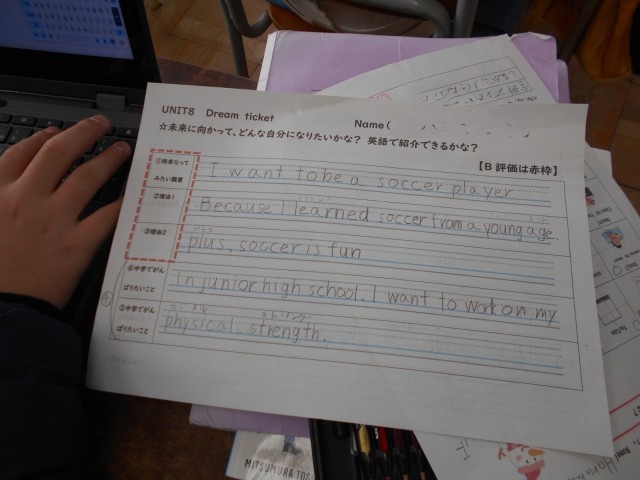 UNIT8 Dream ticket
Name(
☆未来に向かって、どんな自分になりたいかな? 英語で紹介できるかな?
【B 評価は赤枠】
①将来なって
みたい職業
I want to be a soccer player
②理由1
Because I learned soccer from a young age.
③理由2
plus, soccer is fun
④中学でがん
ばりたいこと
In junior high school, I want to work on my
⑤中学でがん
ばりたいこと
physical strength.
MITSUMURA TOS